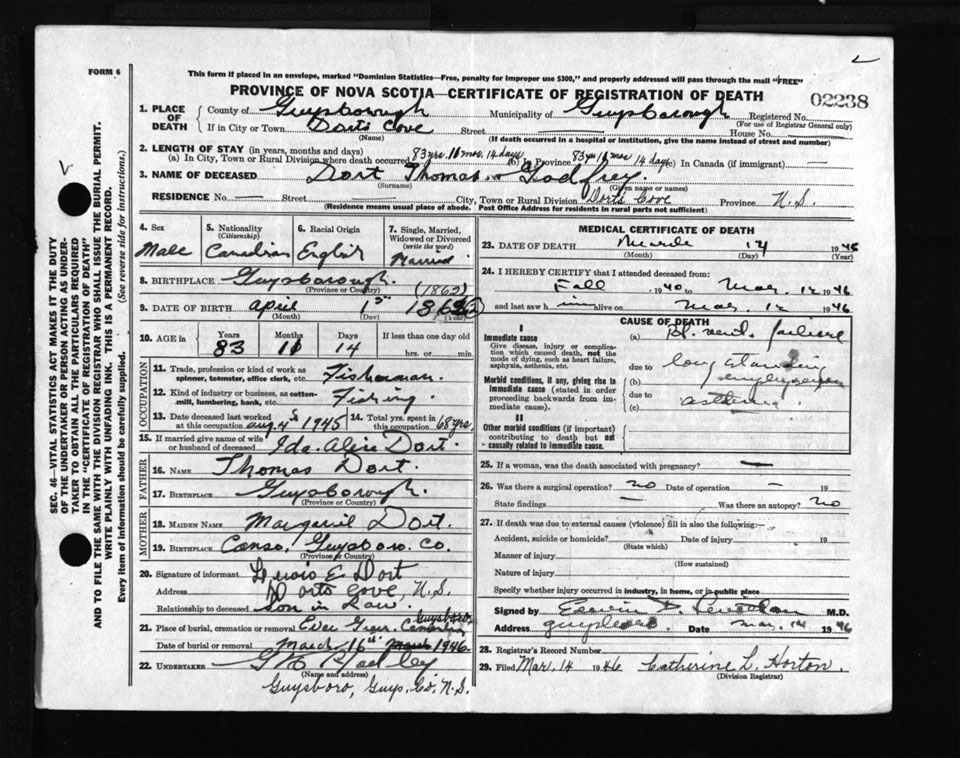 FORM 6
This form if placed in an envelope, marked "Dominion Statistics—Free, penalty for improper use $300," and properly addressed will pass through the mail "FREE"
PROVINCE OF NOVA SCOTIA—CERTIFICATE OF REGISTRATION OF DEATH
02238
1. PLACE OF DEATH County of Guysborough Municipality of Guysborough Registered No.
(For use of Registrar General only)
If in City or Town Dorts Cove Street House No.
(Name) (If death occurred in a hospital or institution, give the name instead of street and number)
2. LENGTH OF STAY (in years, months and days)
(a) In City, Town or Rural Division where death occurred 83 yrs. 11 mos. 14 days (b) In Province 83 yrs 11 mos 14 days (c) In Canada (if immigrant) —
3. NAME OF DECEASED Dort Thomas Godfrey
(Surname) (Given name or names)
RESIDENCE No. Street City, Town or Rural Division Dorts Cove Province N.S.
(Residence means usual place of abode. Post Office Address for residents in rural parts not sufficient)
4. Sex Male
5. Nationality (Citizenship) Canadian
6. Racial Origin English
7. Single, Married, Widowed or Divorced (write the word) Married
8. BIRTHPLACE Guysborough
(Province or Country) (1862)
9. DATE OF BIRTH April 1st
(Month) (Day) (Year)
10. AGE Years 83 Months 11 Days 14 If less than one day old hrs. or min.
OCCUPATION
11. Trade, profession or kind of work as spinner, teamster, office clerk, etc. Fisherman.
12. Kind of industry or business, as cotton-mill, lumbering, bank, etc. Fishing
13. Date deceased last worked at this occupation Aug. 1945
14. Total yrs. spent in this occupation 68 yrs.
15. If married give name of wife or husband of deceased Ida Alice Dort
FATHER
16. NAME Thomas Dort.
17. BIRTHPLACE Guysborough.
(Province or Country)
MOTHER
18. MAIDEN NAME Dort.
19. BIRTHPLACE Canso, Guysboro. Co.
(Province or Country)
20. Signature of informant Lewis E. Dort
Address Dorts Cove, N.S.
Relationship to deceased Son in Law.
21. Place of burial, cremation or removal Ever Green Cemetery Guysboro
Date of burial or removal March 16th 1946
22. UNDERTAKER
(Name and address)
Guysboro, Guys. Co. N.S.
MEDICAL CERTIFICATE OF DEATH
23. DATE OF DEATH March 14 1946
(Month) (Day) (Year)
24. I HEREBY CERTIFY that I attended deceased from:
Fall 1940 to Mar 12 1946
and last saw him alive on Mar. 12 1946
CAUSE OF DEATH
I
Immediate cause
Give disease, injury or complication which caused death, not the mode of dying, such as heart failure, asphyxia, asthenia, etc.
(a) failure
due to long standing
Morbid conditions, if any, giving rise to immediate cause (stated in order proceeding backwards from immediate cause).
(b)
due to asthma.
(c)
II
Other morbid conditions (if important) contributing to death but not causally related to immediate cause.
25. If a woman, was the death associated with pregnancy? —
26. Was there a surgical operation? no Date of operation — 19
State findings — Was there an autopsy? no
27. If death was due to external causes (violence) fill in also the following:—
Accident, suicide or homicide? Date of injury 19
(State which)
Manner of injury
(How sustained)
Nature of injury
Specify whether injury occurred in industry, in home, or in public place
Signed by M.D.
Address Date Mar. 14 1946
28. Registrar's Record Number
29. Filed Mar. 14 1946 Catherine L. Horton.
(Division Registrar)
SEC. 46—VITAL STATISTICS ACT MAKES IT THE DUTY
OF THE UNDERTAKER OR PERSON ACTING AS UNDERTAKER TO OBTAIN ALL THE PARTICULARS REQUIRED
IN THE "CERTIFICATE OF REGISTRATION OF DEATH"
AND TO FILE THE SAME WITH THE DIVISION REGISTRAR WHO SHALL ISSUE THE BURIAL PERMIT.
WRITE PLAINLY WITH UNFADING INK. THIS IS A PERMANENT RECORD.
Every item of information should be carefully supplied. (See reverse side for instructions.)